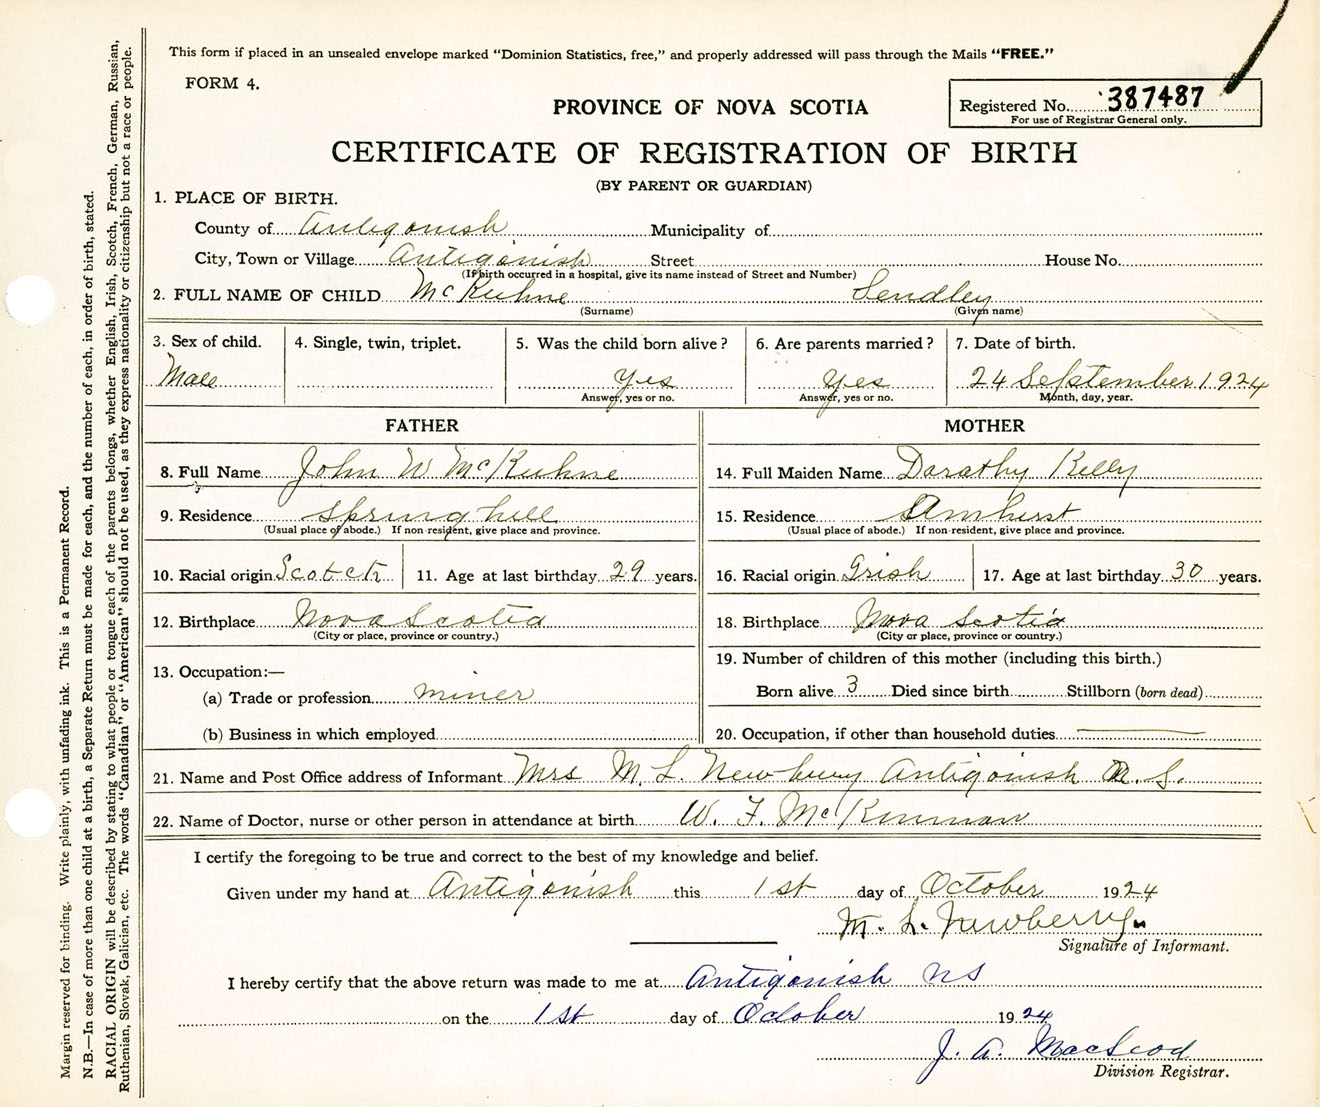 This form if placed in an unsealed envelope marked "Dominion Statistics, free," and properly addressed will pass through the Mails "FREE."
FORM 4.
PROVINCE OF NOVA SCOTIA
Registered No. 387487
For use of Registrar General only.
CERTIFICATE OF REGISTRATION OF BIRTH
(BY PARENT OR GUARDIAN)
1. PLACE OF BIRTH.
County of Antigonish Municipality of
City, Town or Village Antigonish Street House No.
(If birth occurred in a hospital, give its name instead of Street and Number)
2. FULL NAME OF CHILD McKuhne Sendley
(Surname) (Given name)
3. Sex of child. 4. Single, twin, triplet. 5. Was the child born alive? 6. Are parents married? 7. Date of birth.
Male Yes Yes 24 September 1924
Answer, yes or no. Answer, yes or no. Month, day, year.
FATHER MOTHER
8. Full Name John W McKuhne 14. Full Maiden Name Dorathy Kelly
9. Residence Springhill 15. Residence Amherst
(Usual place of abode.) If non-resident, give place and province. (Usual place of abode.) If non-resident, give place and province.
10. Racial origin Scotch 11. Age at last birthday 29 years. 16. Racial origin Irish 17. Age at last birthday 30 years.
12. Birthplace Nova Scotia 18. Birthplace Nova Scotia
(City or place, province or country.) (City or place, province or country.)
13. Occupation:— 19. Number of children of this mother (including this birth.)
(a) Trade or profession miner Born alive 3 Died since birth Stillborn (born dead)
(b) Business in which employed 20. Occupation, if other than household duties
21. Name and Post Office address of Informant Mrs M. L. Newbury Antigonish N. S.
22. Name of Doctor, nurse or other person in attendance at birth W. F. McKinnon
I certify the foregoing to be true and correct to the best of my knowledge and belief.
Given under my hand at Antigonish this 1st day of October 1924
M. L. Newberry
Signature of Informant.
I hereby certify that the above return was made to me at Antigonish NS
on the 1st day of October 1924
J. A. MacLeod
Division Registrar.
Margin reserved for binding. Write plainly, with unfading ink. This is a Permanent Record.
N.B.—In case of more than one child at a birth, a Separate Return must be made for each, and the number of each, in order of birth, stated.
RACIAL ORIGIN will be described by stating to what people or tongue each of the parents belongs, whether English, Irish, Scotch, French, German, Russian,
Ruthenian, Slovak, Galician, etc. The words "Canadian" or "American" should not be used, as they express nationality or citizenship but not a race or people.